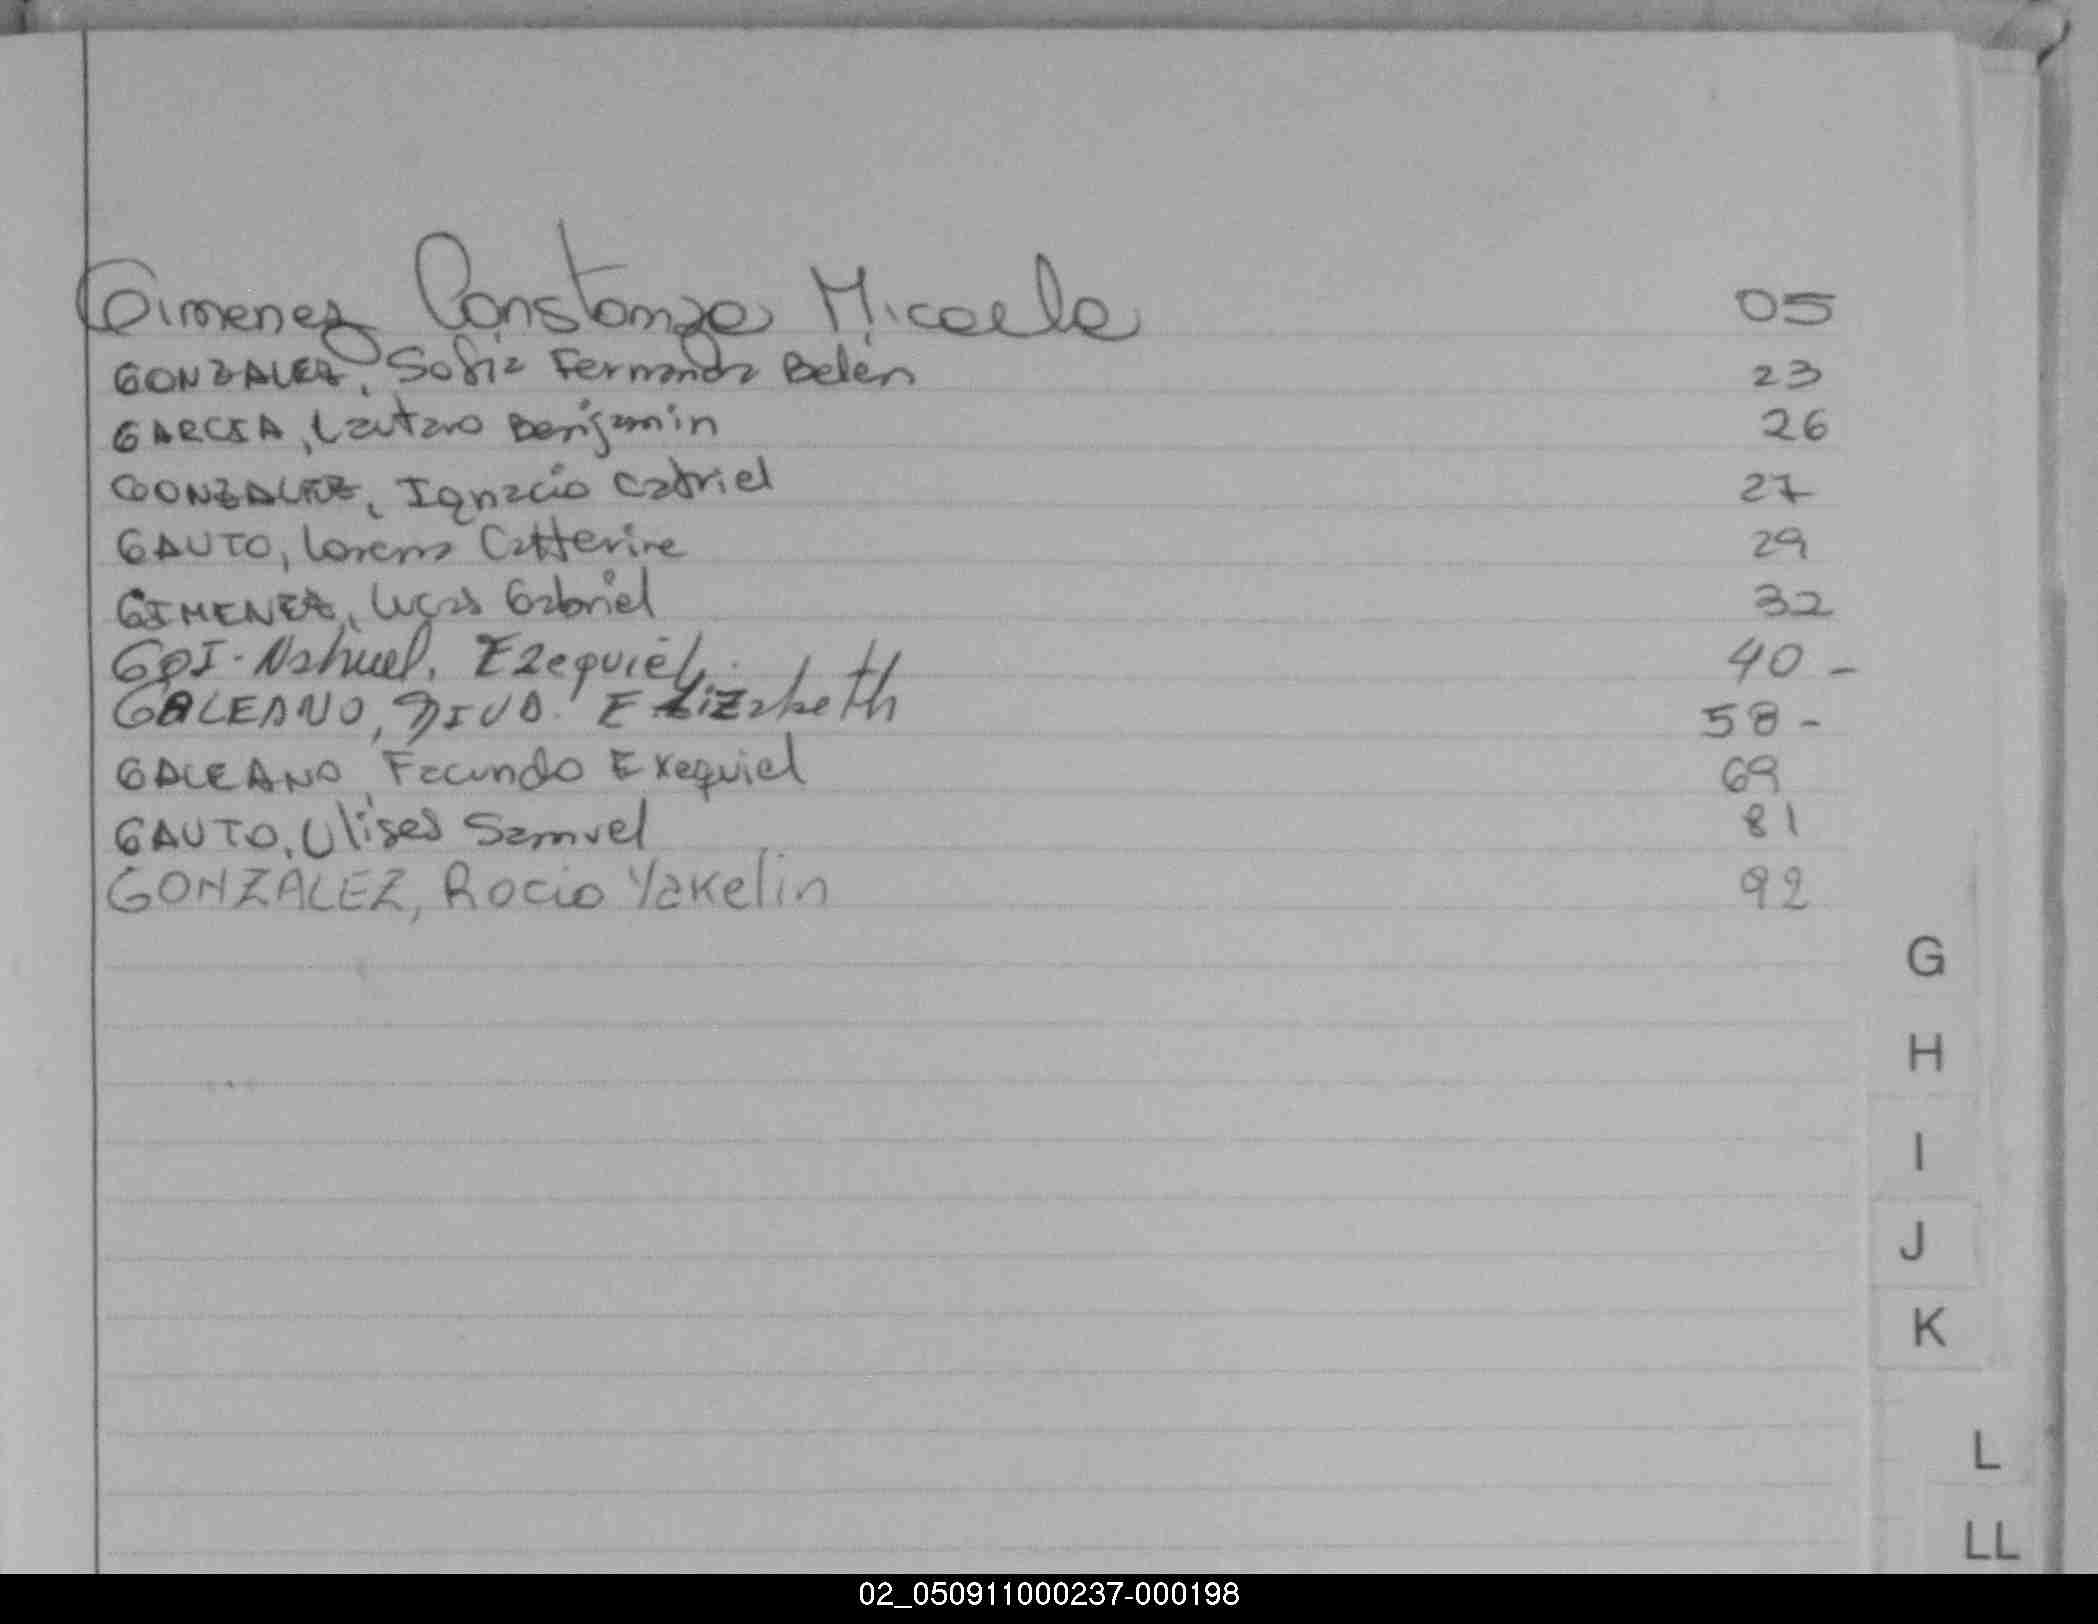 Gimenez Constanza Micaela 05
GONZALEZ, Sofia Fernanda Belén 23
GARCIA, Lautaro Benjamin 26
GONZALEZ, Ignacio Catriel 27
GAUTO, Lorena Catterine 29
GIMENEZ, Lucas Gabriel 32
GOI. Nahuel. Ezequiel. 40 -
GALEANO, DIVA. Elizabeth 58 -
GALEANO, Facundo Exequiel 69
GAUTO, Ulises Samuel 81
GONZALEZ, Rocio Yakelin 92
G
H
I
J
K
L
LL
02_050911000237-000198